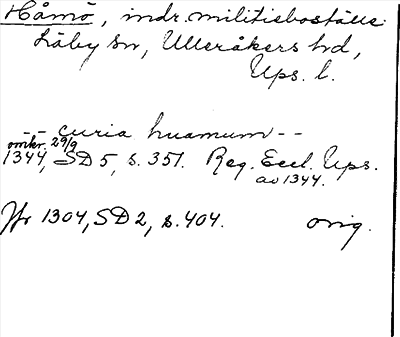 Håmö, indr. militieboställe
Läby sn, Ulleråkers hd,
Ups. l.
-- curia huamum --
omkr. 29/9
1344, SD 5, s. 351. Reg. Eccl. Ups.
av 1344.
Jfr 1304, SD 2, s. 404. orig.